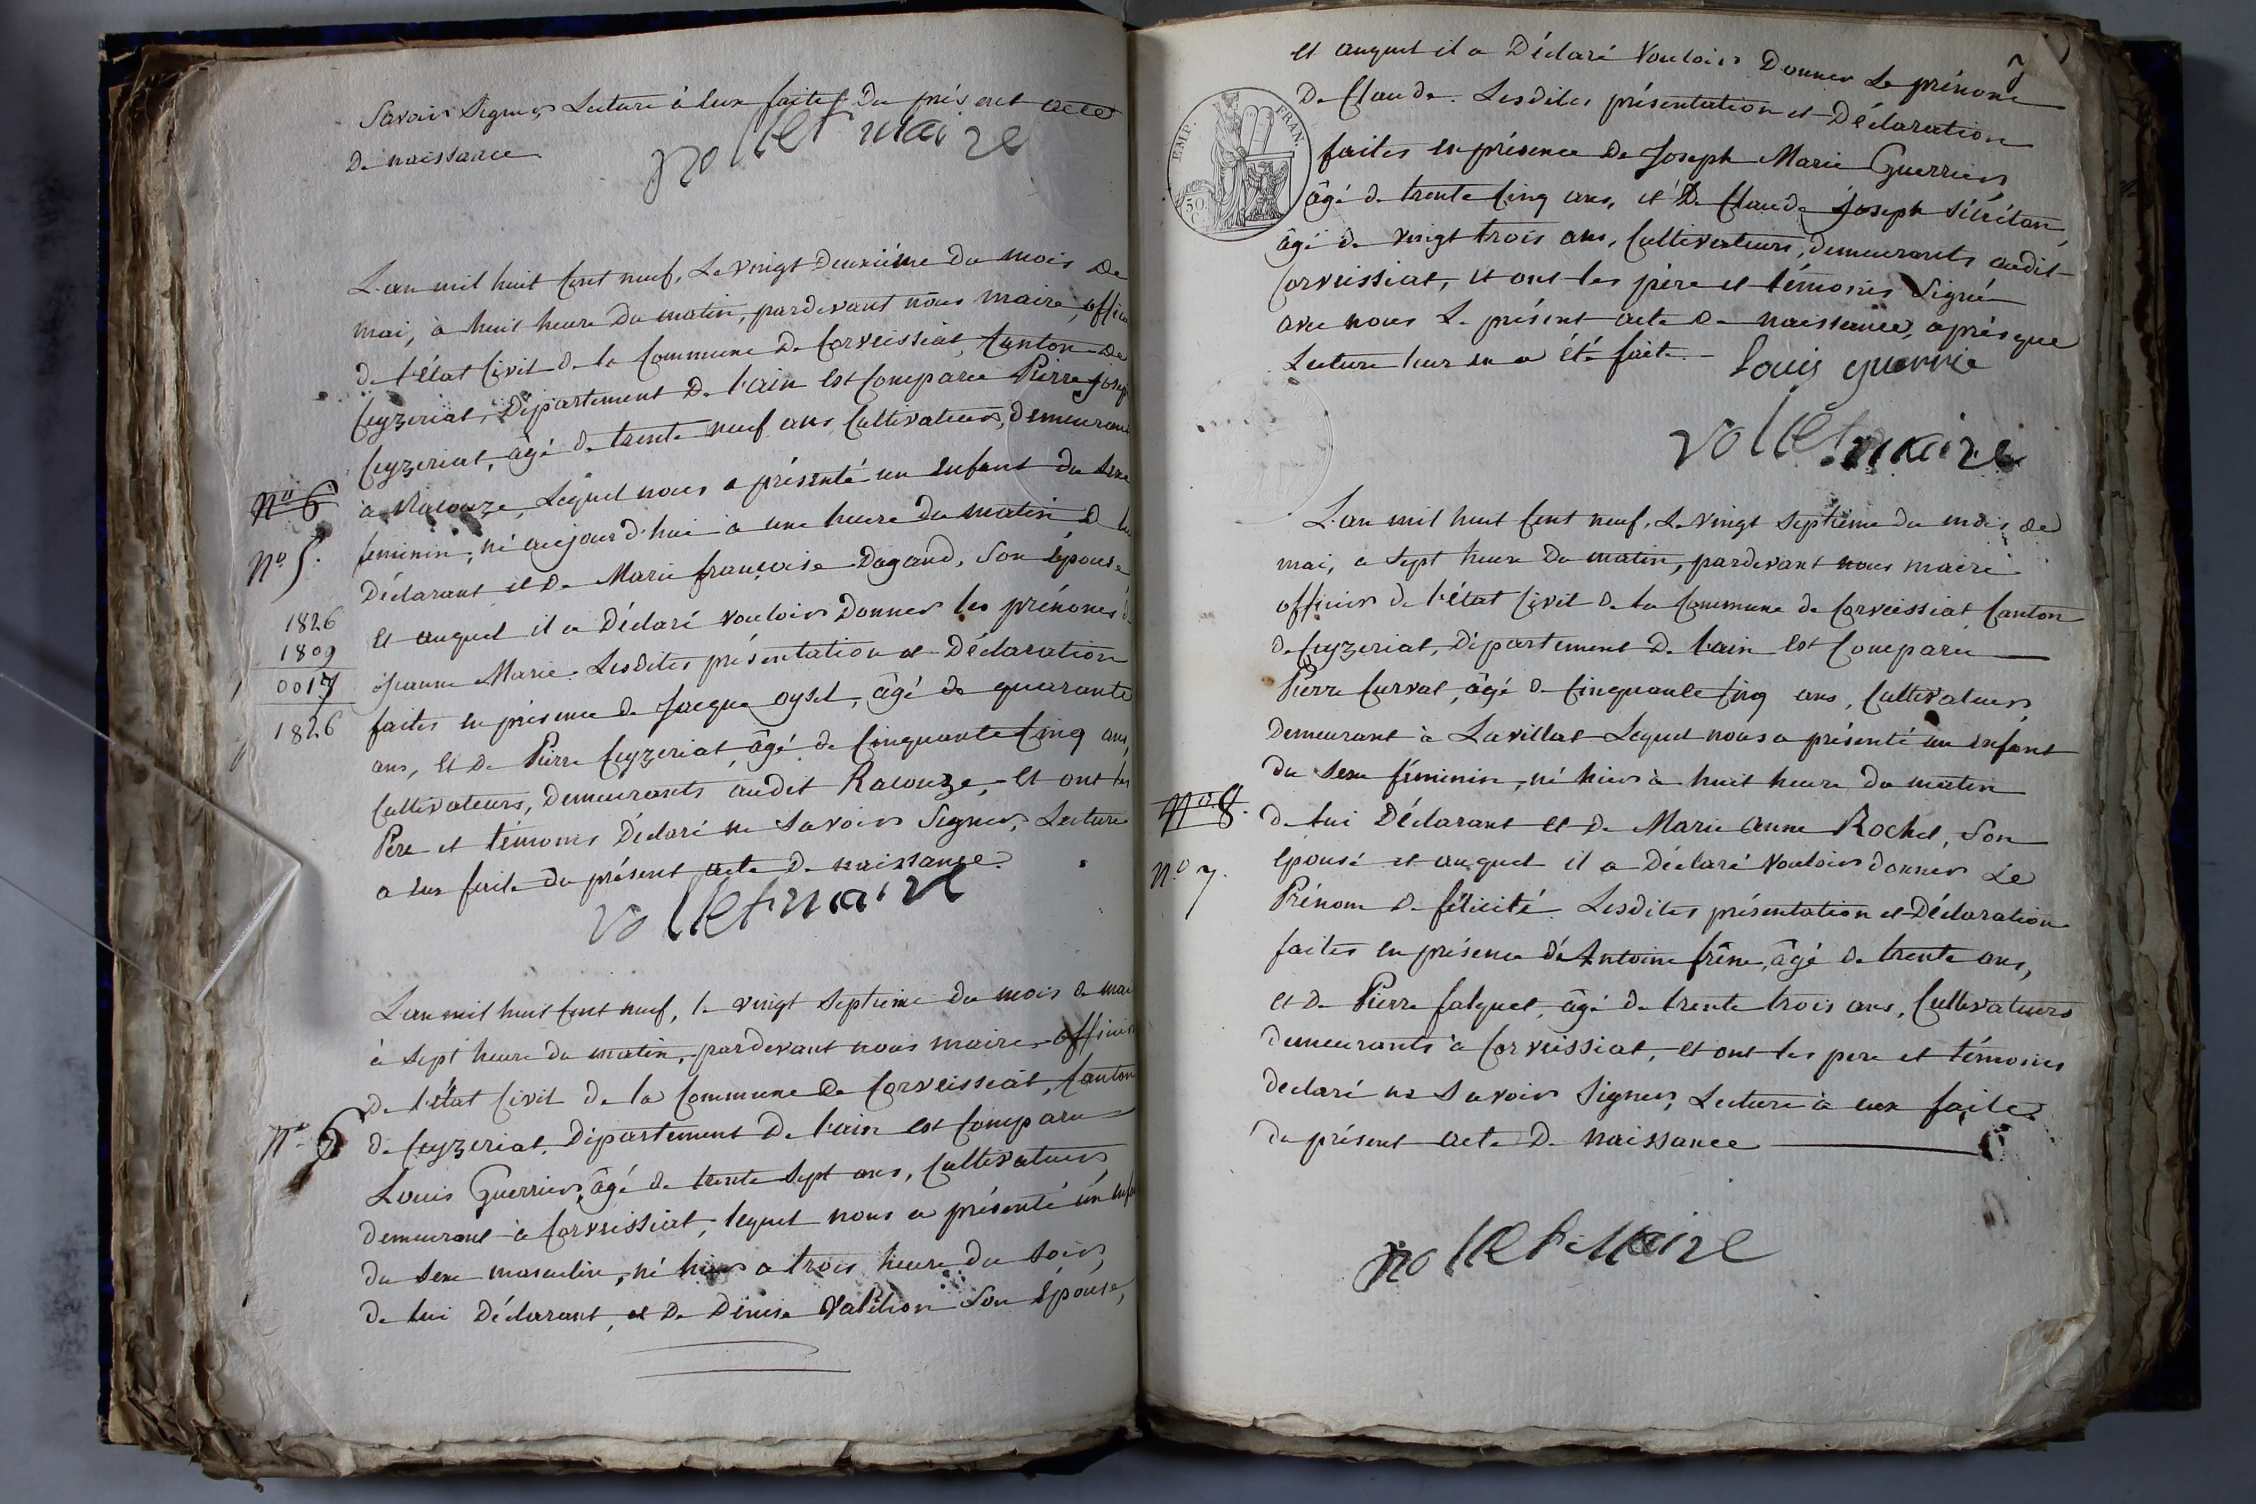 Savoir Signer, Lecture à eux faites du présent acte
De naissance
vollet maire
L'an mil huit Cent neuf, Le vingt Deuxiéme du mois de
mai, à huit heure du matin, pardevant nous maire, offici
de l'état Civil de la Commune de Corveissiat, Canton de
Ceyzeriat, Département De l'ain est Comparu Pierre josep
Ceyzeriat, âgé de trente neuf ans Cultivateur, demeurant
à Racouze, Lequel nous a présenté un Enfant du sexe
feminin, né aujourd'hui à une heure du matin de lui
Déclarant et De Marie françoise Dagand, Son Épouse
et auquel il a Déclaré vouloir Donner les prénoms de
jeanne Marie. Lesdites présentation et Déclaration
faites en présence de Jacque oysel, âgé de quarante
ans, Et De Pierre Ceyzeriat, âgé de Cinquante Cinq ans,
Cultivateurs, Demeurants audit Racouze, et ont les
Pere et témoins Déclaré ne Savoir Signer, Lecture
a eux faite du présent acte de naissance.
vollet maire
Nos 6
No 5.
1826
1809
0017
1826
L'an mil huit Cent neuf, le vingt Septieme du mois de mai
à Sept heure du matin, pardevant nous maire officier
De l'état Civil de la Commune de Corveissiat, Canton
de Ceyzeriat, Département De l'ain est Comparu
Louis Guerrier, âgé de trente Sept ans, Cultivateur
demeurant à Corveissiat, lequel nous a présenté un enfa
du Sexe masculin, né hier a trois heure du Soir,
de lui Déclarant, et De Denise Valetion Son Épouse,
No 6
7
et auquel il a Déclaré Vouloir Donner Le prénom
De Claude. Lesdites présentation et Déclaration
faites en présence De Joseph Marie Guerrier
âgé de trente Cinq ans, et De Claude Joseph
âgé de vingt trois ans, Cultivateurs, demeurants audit
Corveissiat, et ont les père et témoins Signé
avec nous Le présent acte De naissance, après que
Lecture leur en a été faite. louis guerrie
vollet maire
EMP. FRAN.
50 C.
L'an mil huit Cent neuf, Le vingt Septieme du mois de
mai, a Sept heure Du matin, pardevant nous maire
officier de l'état Civil de la Commune de Corveissiat Canton
de Ceyzeriat, Département De l'ain est Comparu
Pierre Curval, âgé de Cinquante Cinq ans, Cultivateur
demeurant à Lavillat Lequel nous a présenté un enfant
du Sexe féminin, né hier à huit heure du matin
de lui Déclarant et De Marie anne Rochet, Son
épouse et auquel il a Déclaré Vouloir donner Le
Prénom de félicité. Lesdites présentation et Déclaration
faites en présence d'Antoine frêne, âgé de trente ans,
et De Pierre falquet, âgé de trente trois ans, Cultivateurs
demeurants à Corveissiat, et ont les pere et témoins
declaré ne Savoir Signer, Lecture à eux faite
du présent acte De naissance
Nos 8.
No 7.
vollet maire